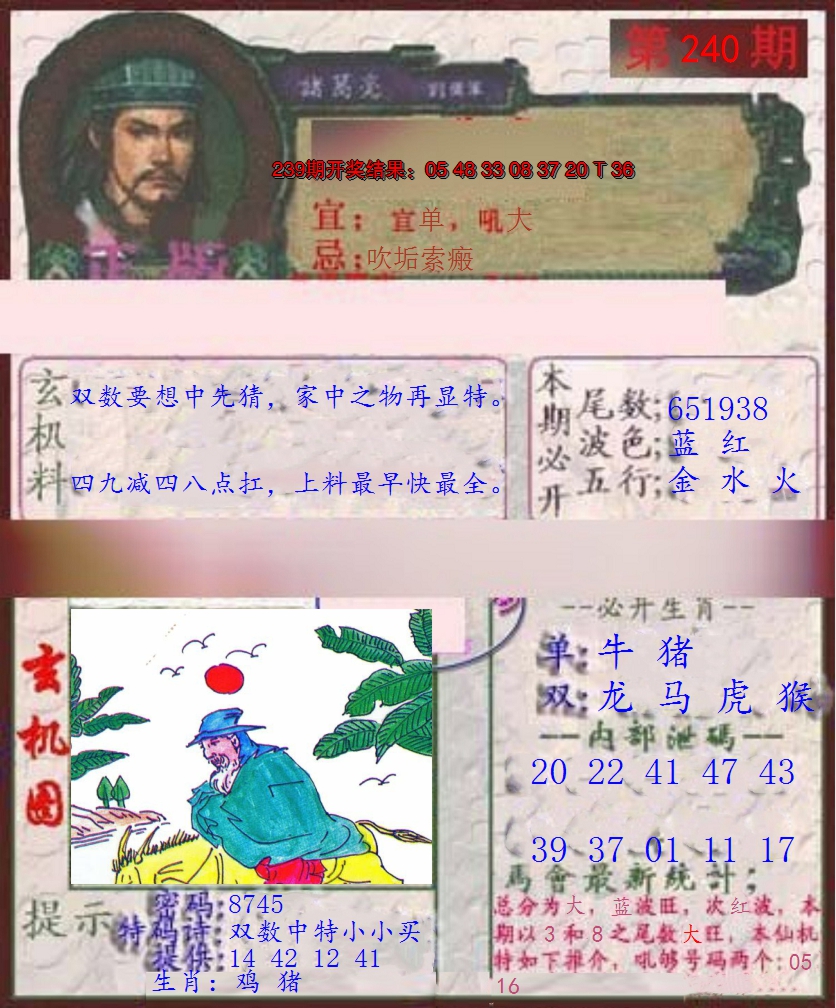 第240期
諸葛亮
239期开奖结果：05 48 33 08 37 20 T 36
宜；宜单，吼大
忌；吹垢索瘢
正版
玄机料
双数要想中先猜，家中之物再显特。
四九减四八点扛，上料最早快最全。
本期必开
尾数；651938
波色；蓝 红
五行；金 水 火
玄机图
--必开生肖--
单：牛 猪
双：龙 马 虎 猴
--内部泄碼--
20 22 41 47 43
39 37 01 11 17
馬會最新統計；
总分为大，蓝波旺，次红波，本
期以3和8之尾数大旺，本仙机
特如下推介，吼够号码两个：05
16
提示
密码：8745
特码诗：双数中特小小买
提供：14 42 12 41
生肖：鸡 猪